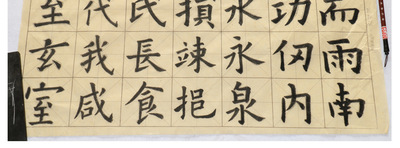 而雨南
功仞内
永泉
損竦挹
氏長食
代我咸
至玄室